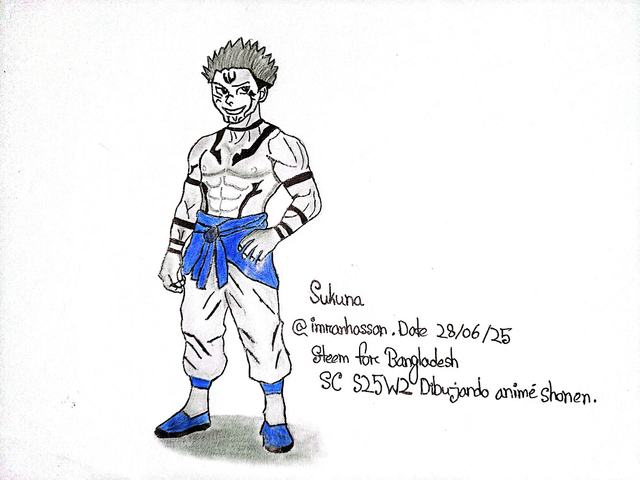 Sukuna
@imranhassan. Date 28/06/25
Steem for: Bangladesh
SC S25W2 Dibujando animé shonen.